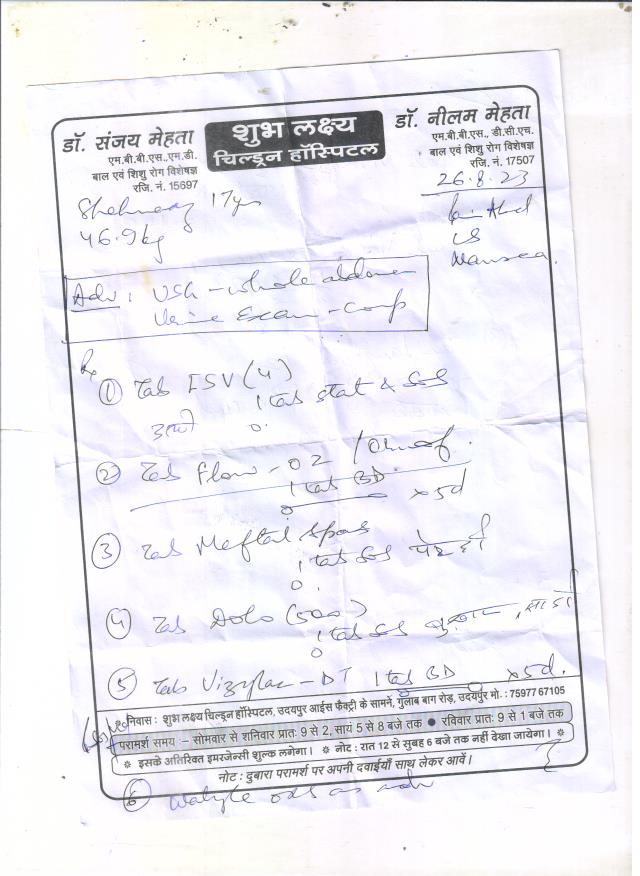 डॉ. संजय मेहता
एम.बी.बी.एस.,एम.डी.
बाल एवं शिशु रोग विशेषज्ञ
रजि. नं. 15697
शुभ लक्ष्य
चिल्ड्रन हॉस्पिटल
डॉ. नीलम मेहता
एम.बी.बी.एस., डी.सी.एच.
बाल एवं शिशु रोग विशेषज्ञ
रजि. नं. 17507
26.8.23
17yr
46.9kg
Nausea
Adv: USG - whole abdomen
Urine Exam - comp
Rx
① Tab (4)
1 tab stat & SOS
② Tab Flow - OZ /
1 tab BD x5d
③ Tab Meftal spas
1 tab SOS
④ Tab Dolo (500)
1 tab SOS बुखार
⑤ Tab - DT 1 tab BD x5d.
निवास : शुभ लक्ष्य चिल्ड्रन हॉस्पिटल, उदयपुर आईस फैक्ट्री के सामने, गुलाब बाग रोड़, उदयपुर मो. : 75977 67105
परामर्श समय :- सोमवार से शनिवार प्रातः 9 से 2, सायं 5 से 8 बजे तक ● रविवार प्रातः 9 से 1 बजे तक
❊ इसके अतिरिक्त इमरजेन्सी शुल्क लगेगा। ❊ नोट : रात 12 से सुबह 6 बजे तक नहीं देखा जायेगा। ❊
नोट : दुबारा परामर्श पर अपनी दवाईयाँ साथ लेकर आवें।
⑥ ORS as